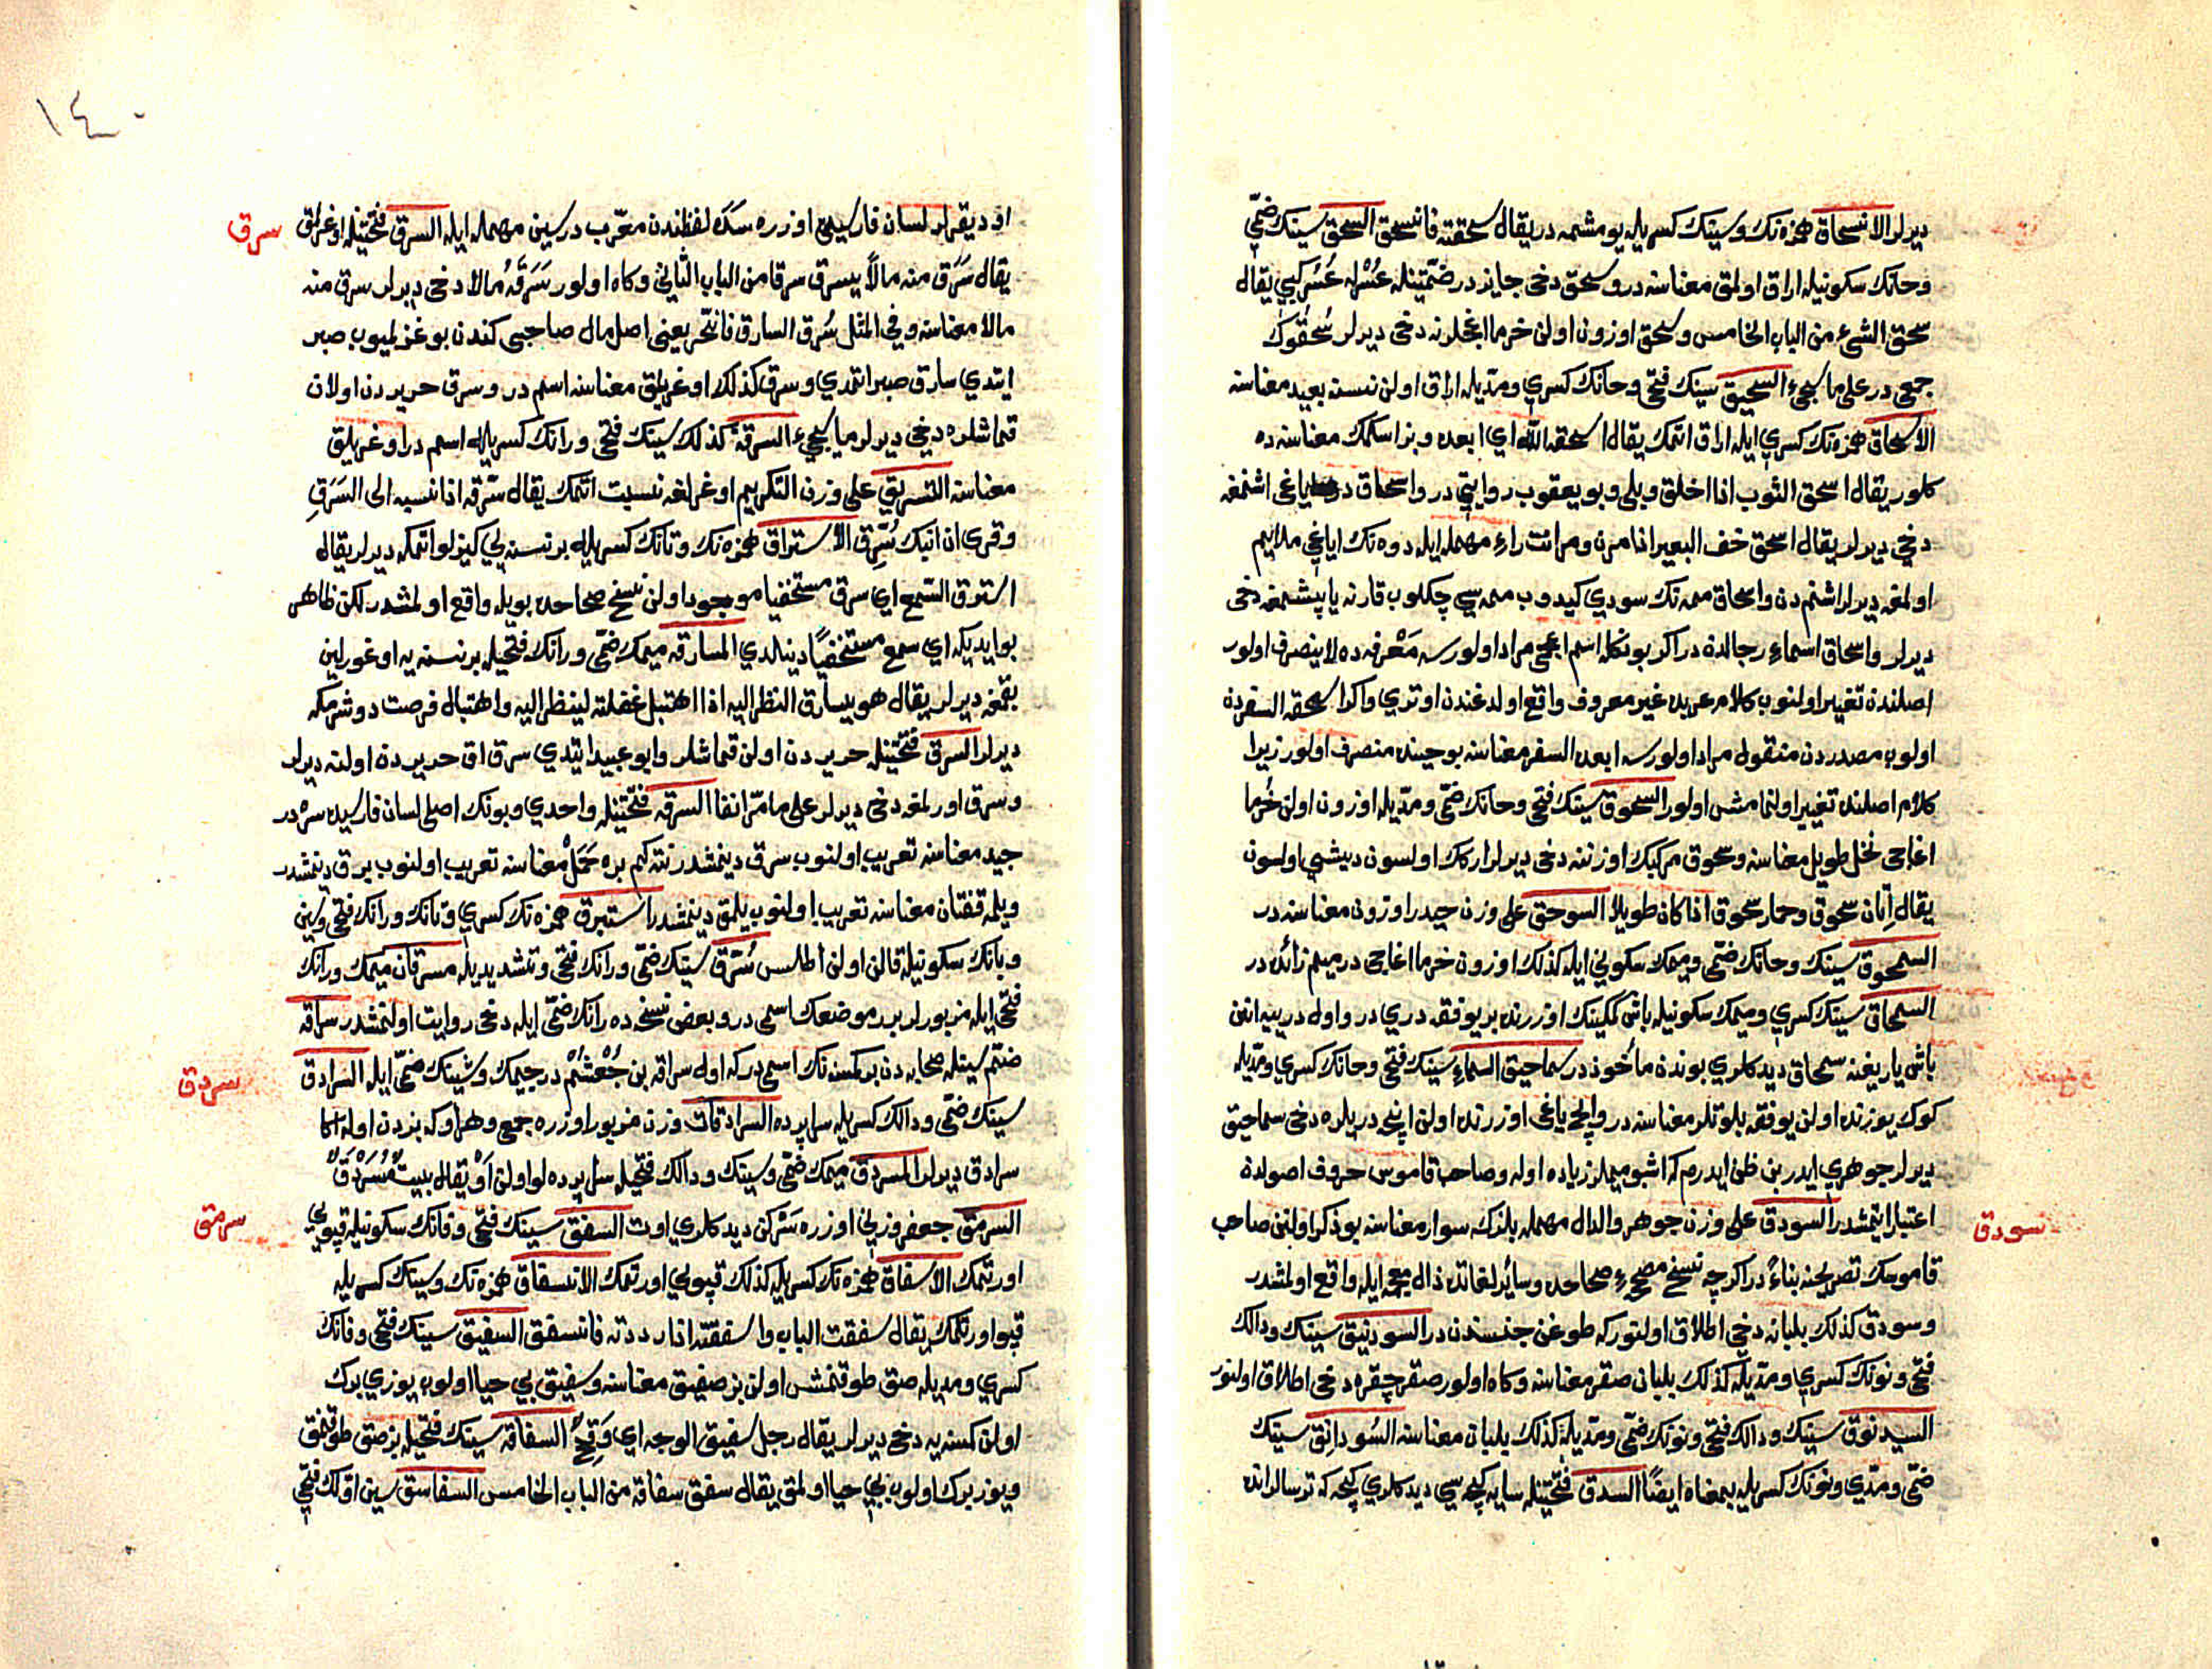 ديرلر الانسحاق همزه نك وسينك كسريله يومشمه در يقال سحقته فانسحق السحق سينك ضمّي
وحانك سكونيله اراق اولمق معناسنه در وسحق دخى جايز در ضمّتينله عُسْر عُسُر كبي يقال
سحق الشيء من الباب الخامس وسحق اوزون اولن خرما اغجلرنه دخى ديرلر سُحُقوك
جمعى در على ما يجيء السحيق سينك فتحى وحانك كسري ومدّيله اراق اولن نسنه بعيد معناسنه
الاسحاق همزه نك كسري ايله اراق اتمك يقال اسحقه الله اي ابعده وبز اسكمك معناسنه ده
كلور يقال اسحق الثوب اذا اخلق وبلى وبو يعقوب روايتي در واسحاق دوه اياغى اشنمغه
دخي ديرلر يقال اسحق خف البعير اذا مرن ومرانت راء مهمله ايله دوه نك اياغي ملايم
اولمغه ديرلر اشنمدن واسحاق ممه نك سودي كيدوب ممه سي چكلوب قارنه ياپشمغه دخى
ديرلر واسحاق اسماء رجالدن در اكر بونكله اسم اعجمى مراد اولورسه مَعْرفه ده لا ينصرف اولور
اصلندن تغيير اولنوب كلام عربده غير معروف واقع اولدغندن اوتري واكر اسحقه السفردن
اولوب مصدردن منقول مراد اولورسه ابعده السفر معناسنه بو جهتدن منصرف اولور زيرا
كلام اصلندن تغيير اولنمامشدر السحوق سينك فتحى وحانك ضمّى ومدّيله اوزون اولن خُرما
اغاجى نخل طويل معناسنه وسحوق مركبك اوزننه دخى ديرلر اركك اولسون ديشي اولسون
يقال اتان سحوق وحمار سحوق اذا كان طويلا السوحق على وزن حيدر اوزون معناسنه در
السمحوق سينك وحانك ضمّى وميمك سكوني ايله كذلك اوزون خرما اغاجى در ميم زائده در
السمحاق سينك كسري وميمك سكونيله باش كمكينك اوزرنده بر يوفقه دري در واول درييه ايرن
باش ياريغنه سمحاق ديدكلري بوندن مأخوذ در سماحيق السماء سينك فتحى وحانك كسري ومدّيله
كوك يوزنده اولن يوفقه بلوتلر معناسنه در وايچ ياغى اوزرنده اولن اينجه دريلره دخى سماحيق
ديرلر جوهري ايدر بن ظن ايدرم كه اشبو ميملر زياده اوله وصاحب قاموس حروف اصولدن
اعتبار ايتمشدر السودق على وزن جوهر والدال مهمله بلزك سوار معناسنه بو ذكر اولنن صاحب
قاموسك تصريحنه بناءً در اكرچه نسخ مصححهٔ صحاحده وسائر لغاتده ذال معجمه ايله واقع اولمشدر
وسودق كذلك بلبانه دخي اطلاق اولنور كه طوغن جنسندن در السودنيق سينك ودالك
فتحى ونونك كسري ومدّيله كذلك بلبان صقر معناسنه وكاه اولور صقر چقره دخى اطلاق اولنور
السيدنوق سينك ودالك فتحى ونونك ضمّى ومدّيله كذلك بلبان معناسنه السُودانِق سينك
ضمّى ومدّي ونونك كسريله بمعناه ايضًا السدق فتحتينله سايه كچه سي ديدكلري كيجه كه ترسالر انده
سودق
١٤٠
اود يقرلر لسان فارسيدن اوزره سَدَه لفظندن معرّب در سين مهمله ايله السرق فتحتينله اوغرلق
يقال سَرَق منه مالاً يسرق سرقا من الباب الثاني وكاه اولور سَرَقَهُ مالا دخى ديرلر سرق منه
مالا معناسنه وفي المثل سُرق السارق فانتحر يعنى اصل مال صاحبى كندن بوغزلميوب صبر
ايتدي سارق صبر اتمدي وسرق كذلك اوغريلق معناسنه اسم در وسرق حريردن اولان
قماشلره دخى ديرلر ما يجيء السرقة كذلك سينك فتحى ورانك كسريله اسم در اوغريلق
معناسنه التسريق على وزن التكريم اوغرلغه نسبت اتمك يقال سرّقه اذا نسبه الى السَرَقِ
وقرى ان ابنك سُرِّق الاستراق همزه نك وتانك كسريله بر نسنه يي كيزلو اتمكه ديرلر يقال
استرق السَّمع اي سرق مستخفيا موجود اولن نسخ صحاحده بويله واقع اولمشدر لكن ظاهر
بو ايديكه اي سمع مستخفيًا دينلدي المسارقه ميمك ضمّى ورانك فتحيله بر نسنه يه اوغورلين
بقمغه ديرلر يقال هو يسارق النظر اليه اذا اهتبل غفلته لينظر اليه واهتبال فرصت دوشرمكه
ديرلر السرق فتحتينله حريردن اولن قماشلر وابو عبيد ايتدي سرق اق حريردن اولنه ديرلر
وسرق اورلمغه دخى ديرلر على ما مرّ انفا السرقه فتحتينله واحدي وبونك اصلى لسان فارسيده سره در
جيد معناسنه تعريب اولنوب سرق دينمشدر نته كم بره حَمَلْ معناسنه تعريب اولنوب برق دينمشدر
ويلمه قفتان معناسنه تعريب اولنوب يلمق دينمشدر استبرق همزه نك كسري وتانك ورانك فتحى وسين
وبانك سكونيله قالن اولن اطلس سُرّق سينك ضمّى ورانك فتحى وتشديديله مسرقان ميمك ورانك
فتحى ايله مزبورلر برر موضعك اسمى در وبعض نسخه ده رانك ضمّى ايله دخى روايت اولنمشدر سراقه
ضمّ سينله صحابه دن بر كمسنه نك اسمى دركه اول سراقه بن جُعْشُم در جيمك وشينك ضمّى ايله السرادق
سينك ضمّى ودالك كسريله سراپرده السرادقات وزن مزبور اوزره جمعى وهر اوكه بزدن اوله اكا
سرادق ديرلر المسردق ميمك ضمّى وسينك ودالك فتحيله سراپرده لو اولن اَوْ يقال بيتٌ مُسَرْدَقٌ
السرمق جعفر وزنى اوزره سَرْمَك ديدكلري اوت السفق سينك فتحى وفانك سكونيله قپويي
اورتمك الاسفاق همزه نك كسريله كذلك قپويي اورتمك الانسفاق همزه نك وسينك كسريله
قپو اورتلمك يقال سفقت الباب واسفقته اذا رددته فانسفق السفيق سينك فتحى وفانك
كسري ومديله صق طوقنمش اولن بز صفيق معناسنه وسفيق بي حيا اولوب يوزي بوك
اولن كمسنه يه دخى ديرلر يقال رجل سفيق الوجه اي وَقِحٌ السفاقه سينك فتحيله بز صق طوقنمق
ويوز برك اولوب بي حيا اولمق يقال سفق سفاقه من الباب الخامس السفاسق سين اوّلك فتحى
سرق
سردق
سرمق